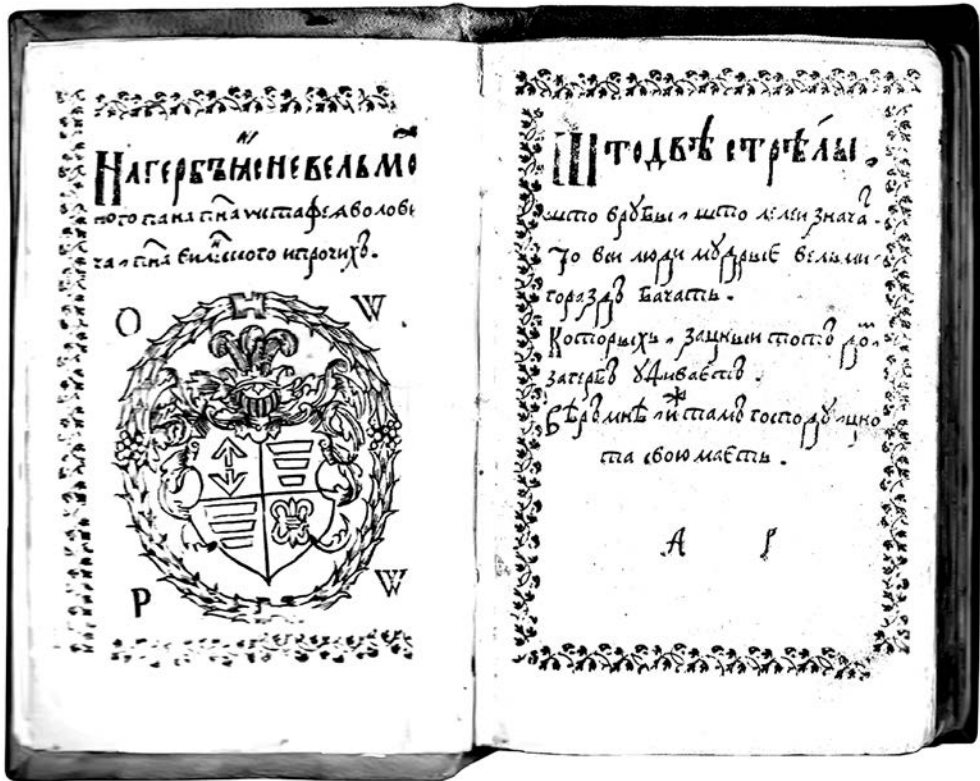 На гербъ ꙗснєвєльмо
ного пана пна Ѡстафєꙗ волови
ча пна виленского и прочихъ.
O W
P W
Што двѣ стрѣлы
што врубы и што лєлєи значат.
То вси люди мудрыє вєльми
гораздъ бачать.
Которыхъ зацныи тотъ
за гербъ уживаєтъ.
Вѣръ мнѣ иж тамъ господу цно
та свою маєть.
А Р